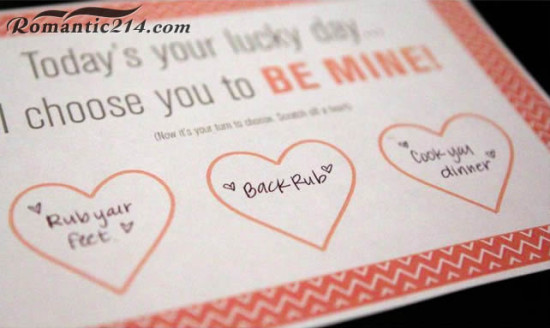 Romantic214.com
Today's your lucky day...
I choose you to BE MINE!
(Now it's your turn to choose. Scratch off a heart)
Rub your
feet.
Back Rub
Cook you
dinner